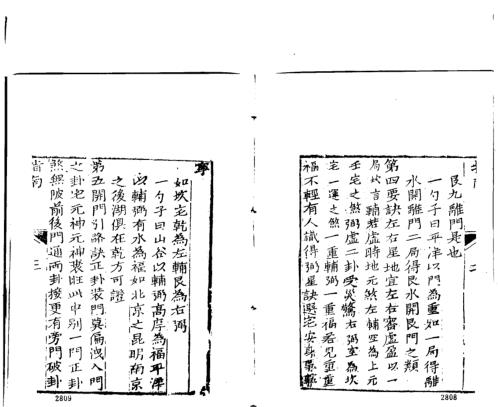 艮九離門是也
一勺子曰平洋以門為重如一局得離
水開離門二局得艮水開艮門之類
第四要訣左右星地宜左右審虛盈以一
局坎言輔若虛時地元煞左輔空為上元
壬宅之煞弼虛二卦受災驚右弼空為坎
宅一運之煞一重輔弼一重福若見重重
福不輕有人識得弼星訣選宅安身
二
2808
如坎宅乾為左輔艮為右弼
一勺子曰山谷以輔弼高厚為福平洋
以輔弼有水為福如北京之昆明南京
之後湖俱在乾方可證
第五開門引路訣正卦裝門莫偏洩入門
之卦宅元神元神衰旺此中別一門正卦
煞無陂前後門通兩卦接更有旁門破卦
指南
三
2809